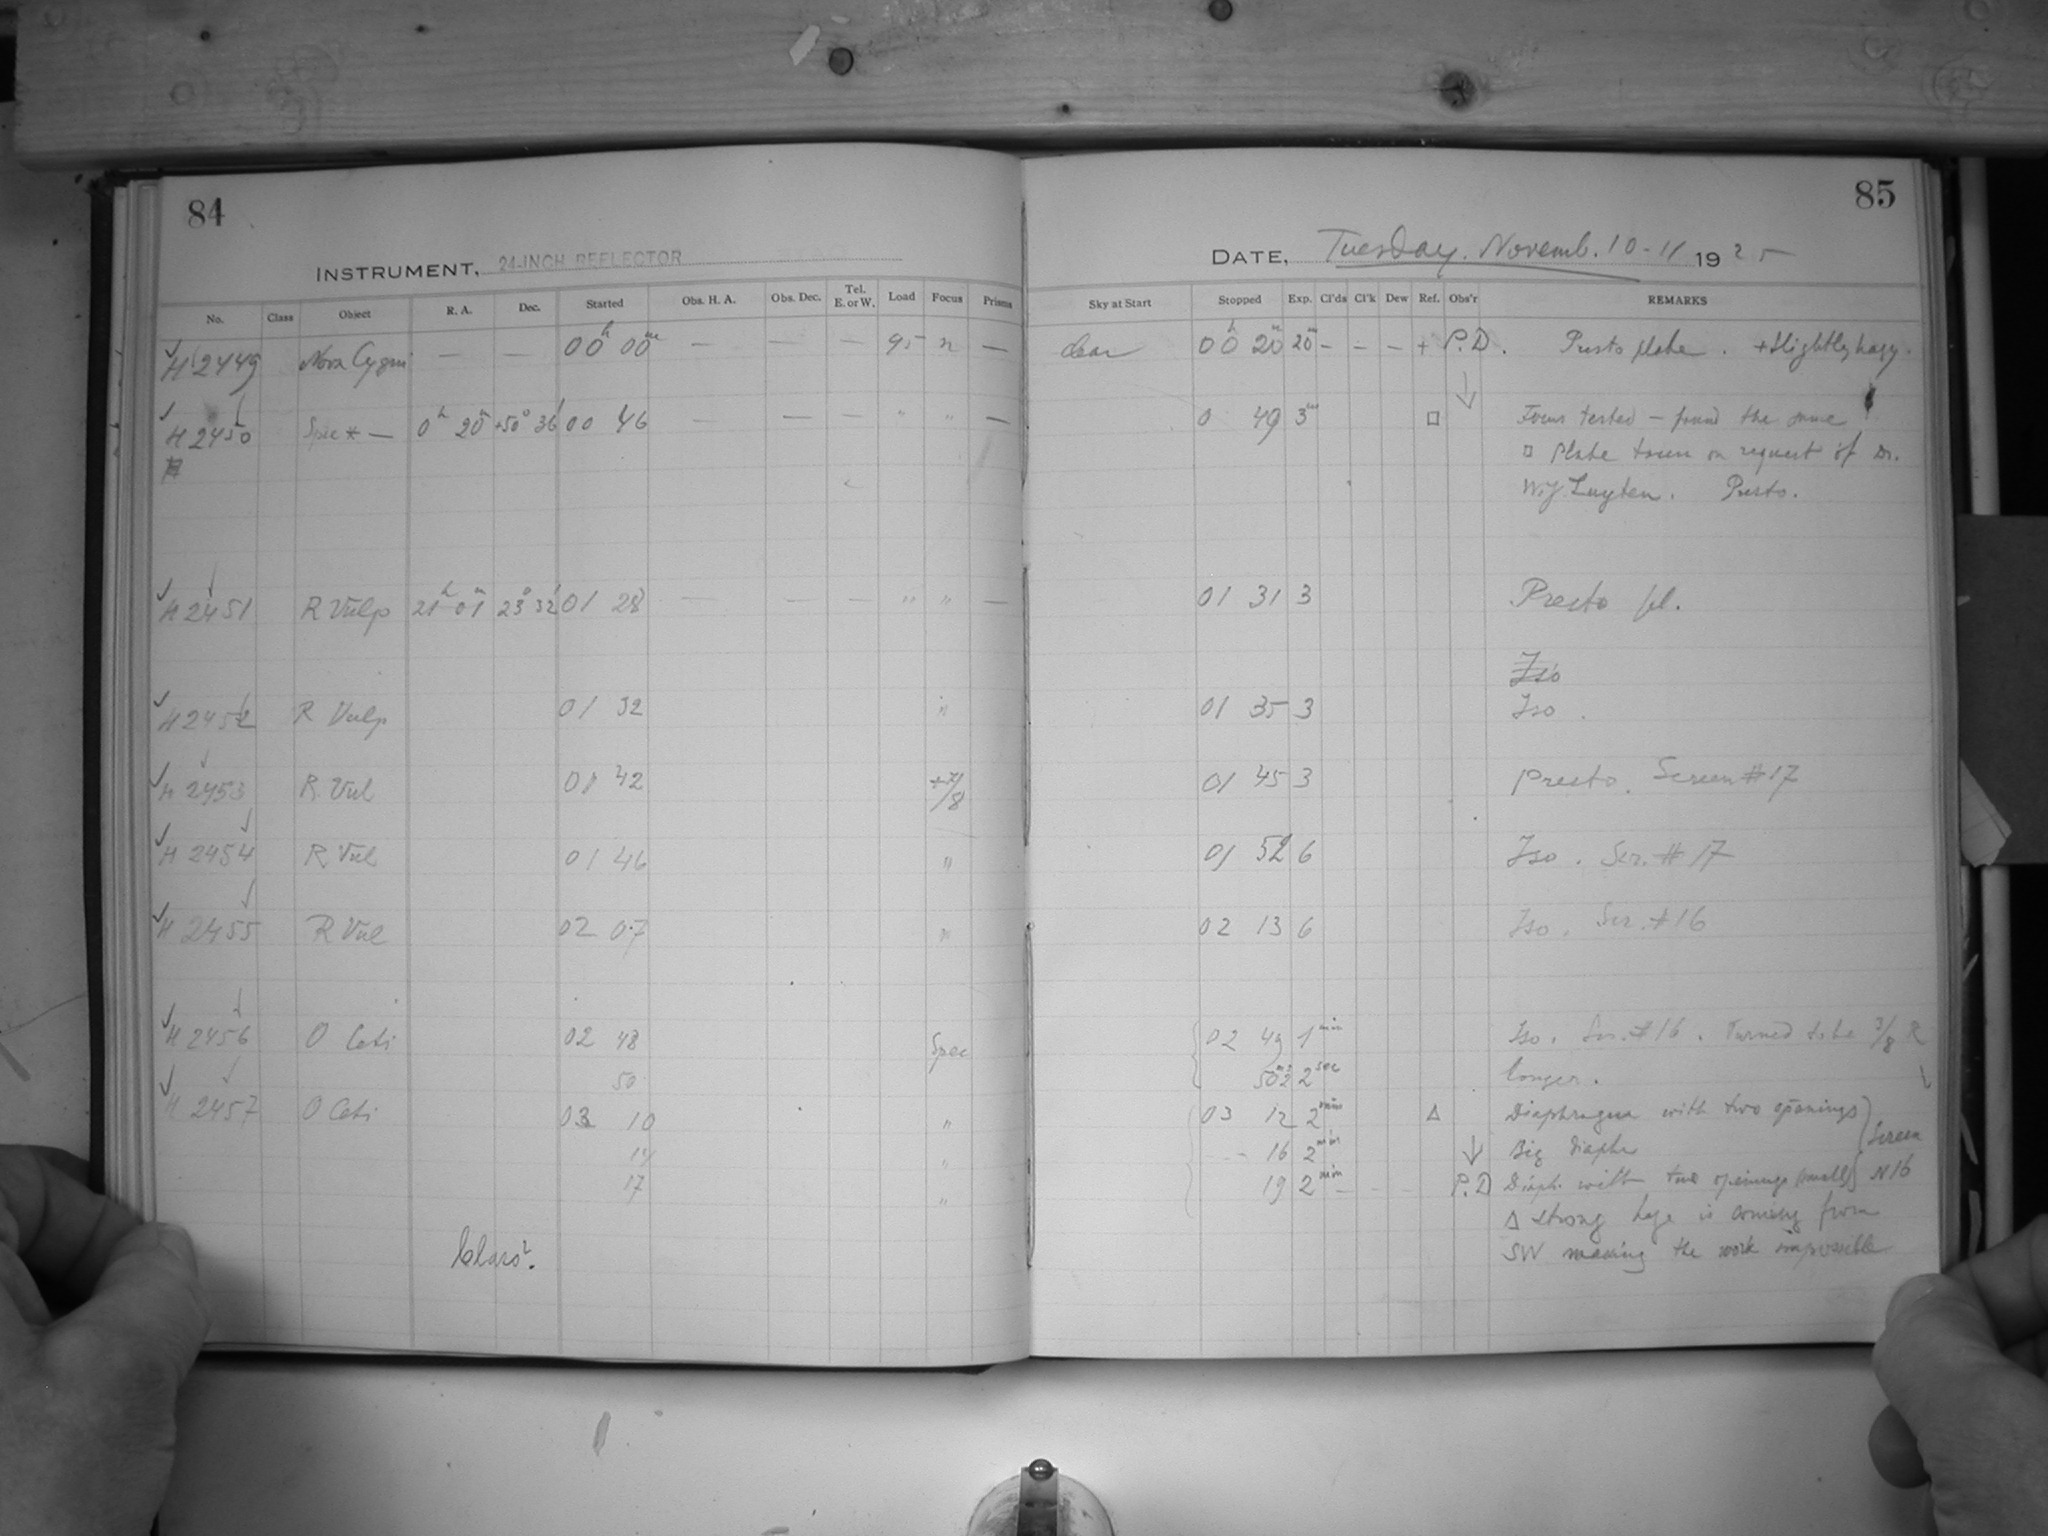 84
INSTRUMENT, 24-INCH REFLECTOR
No. Class Object R. A. Dec. Started Obs. H. A. Obs. Dec. Tel. E. or W. Load Focus Prisms
H 2449 Nova Cygni — — 00h 00m — — — 95 n —
H 2450 Spec * — 0h 20m +50° 36' 00 46 — — — " " —
H 2451 R Vulp 21h 01m 23° 32' 01 28 — — — " " —
H 2452 R Vulp 01 32 "
H 2453 R. Vul 01 42 +7/8
H 2454 R Vul 01 46 "
H 2455 R Vul 02 07 "
H 2456 O Ceti 02 48 Spec
50
H 2457 O Ceti 03 10 "
14 "
17 "
85
DATE, Tuesday. Novemb. 10-11 1925
Sky at Start Stopped Exp. Cl'ds Cl'k Dew Ref. Obs'r REMARKS
clear 00h 20m 20m - - - + P.D. Presto plate. + Slightly hazy.
0 49 3m □ Focus tested — found the same
□ Plate taken on request of Dr.
W.J. Luyten. Presto.
01 31 3 Presto pl.
Iso
01 35 3 Iso.
01 45 3 Presto. Screen #17
01 52 6 Iso. Scr. #17
02 13 6 Iso. Scr. #16
02 49 1 min Iso. Scr. #16. Turned to be 3/8 R
50 2 2 sec longer.
03 12 2 min Δ Diaphragm with two openings
16 2 min Big diaphr Screen
19 2 min P.D Diaph. with two openings (small) N16
Δ Strong haze is coming from
SW making the work impossible